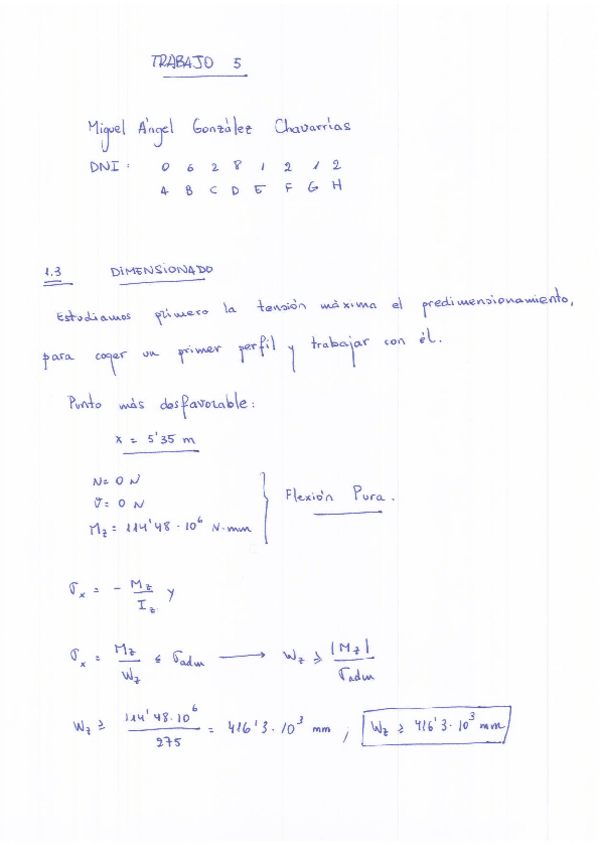 TRABAJO 5
Miguel Ángel González Chavarrías
DNI: 0 6 2 8 1 2 1 2
A B C D E F G H
1.3 DIMENSIONADO
Estudiamos primero la tensión máxima el predimensionamiento,
para coger un primer perfil y trabajar con él.
Punto más desfavorable:
x = 5'35 m
N = 0 N
V = 0 N
Mz = 114'48 · 10⁶ N·mm
Flexión Pura.
σx = - Mz/Iz y
σx = Mz/Wz ≤ σadm → Wz ≥ |Mz|/σadm
Wz ≥ 114'48·10⁶/275 = 416'3·10³ mm ; Wz ≥ 416'3·10³ mm